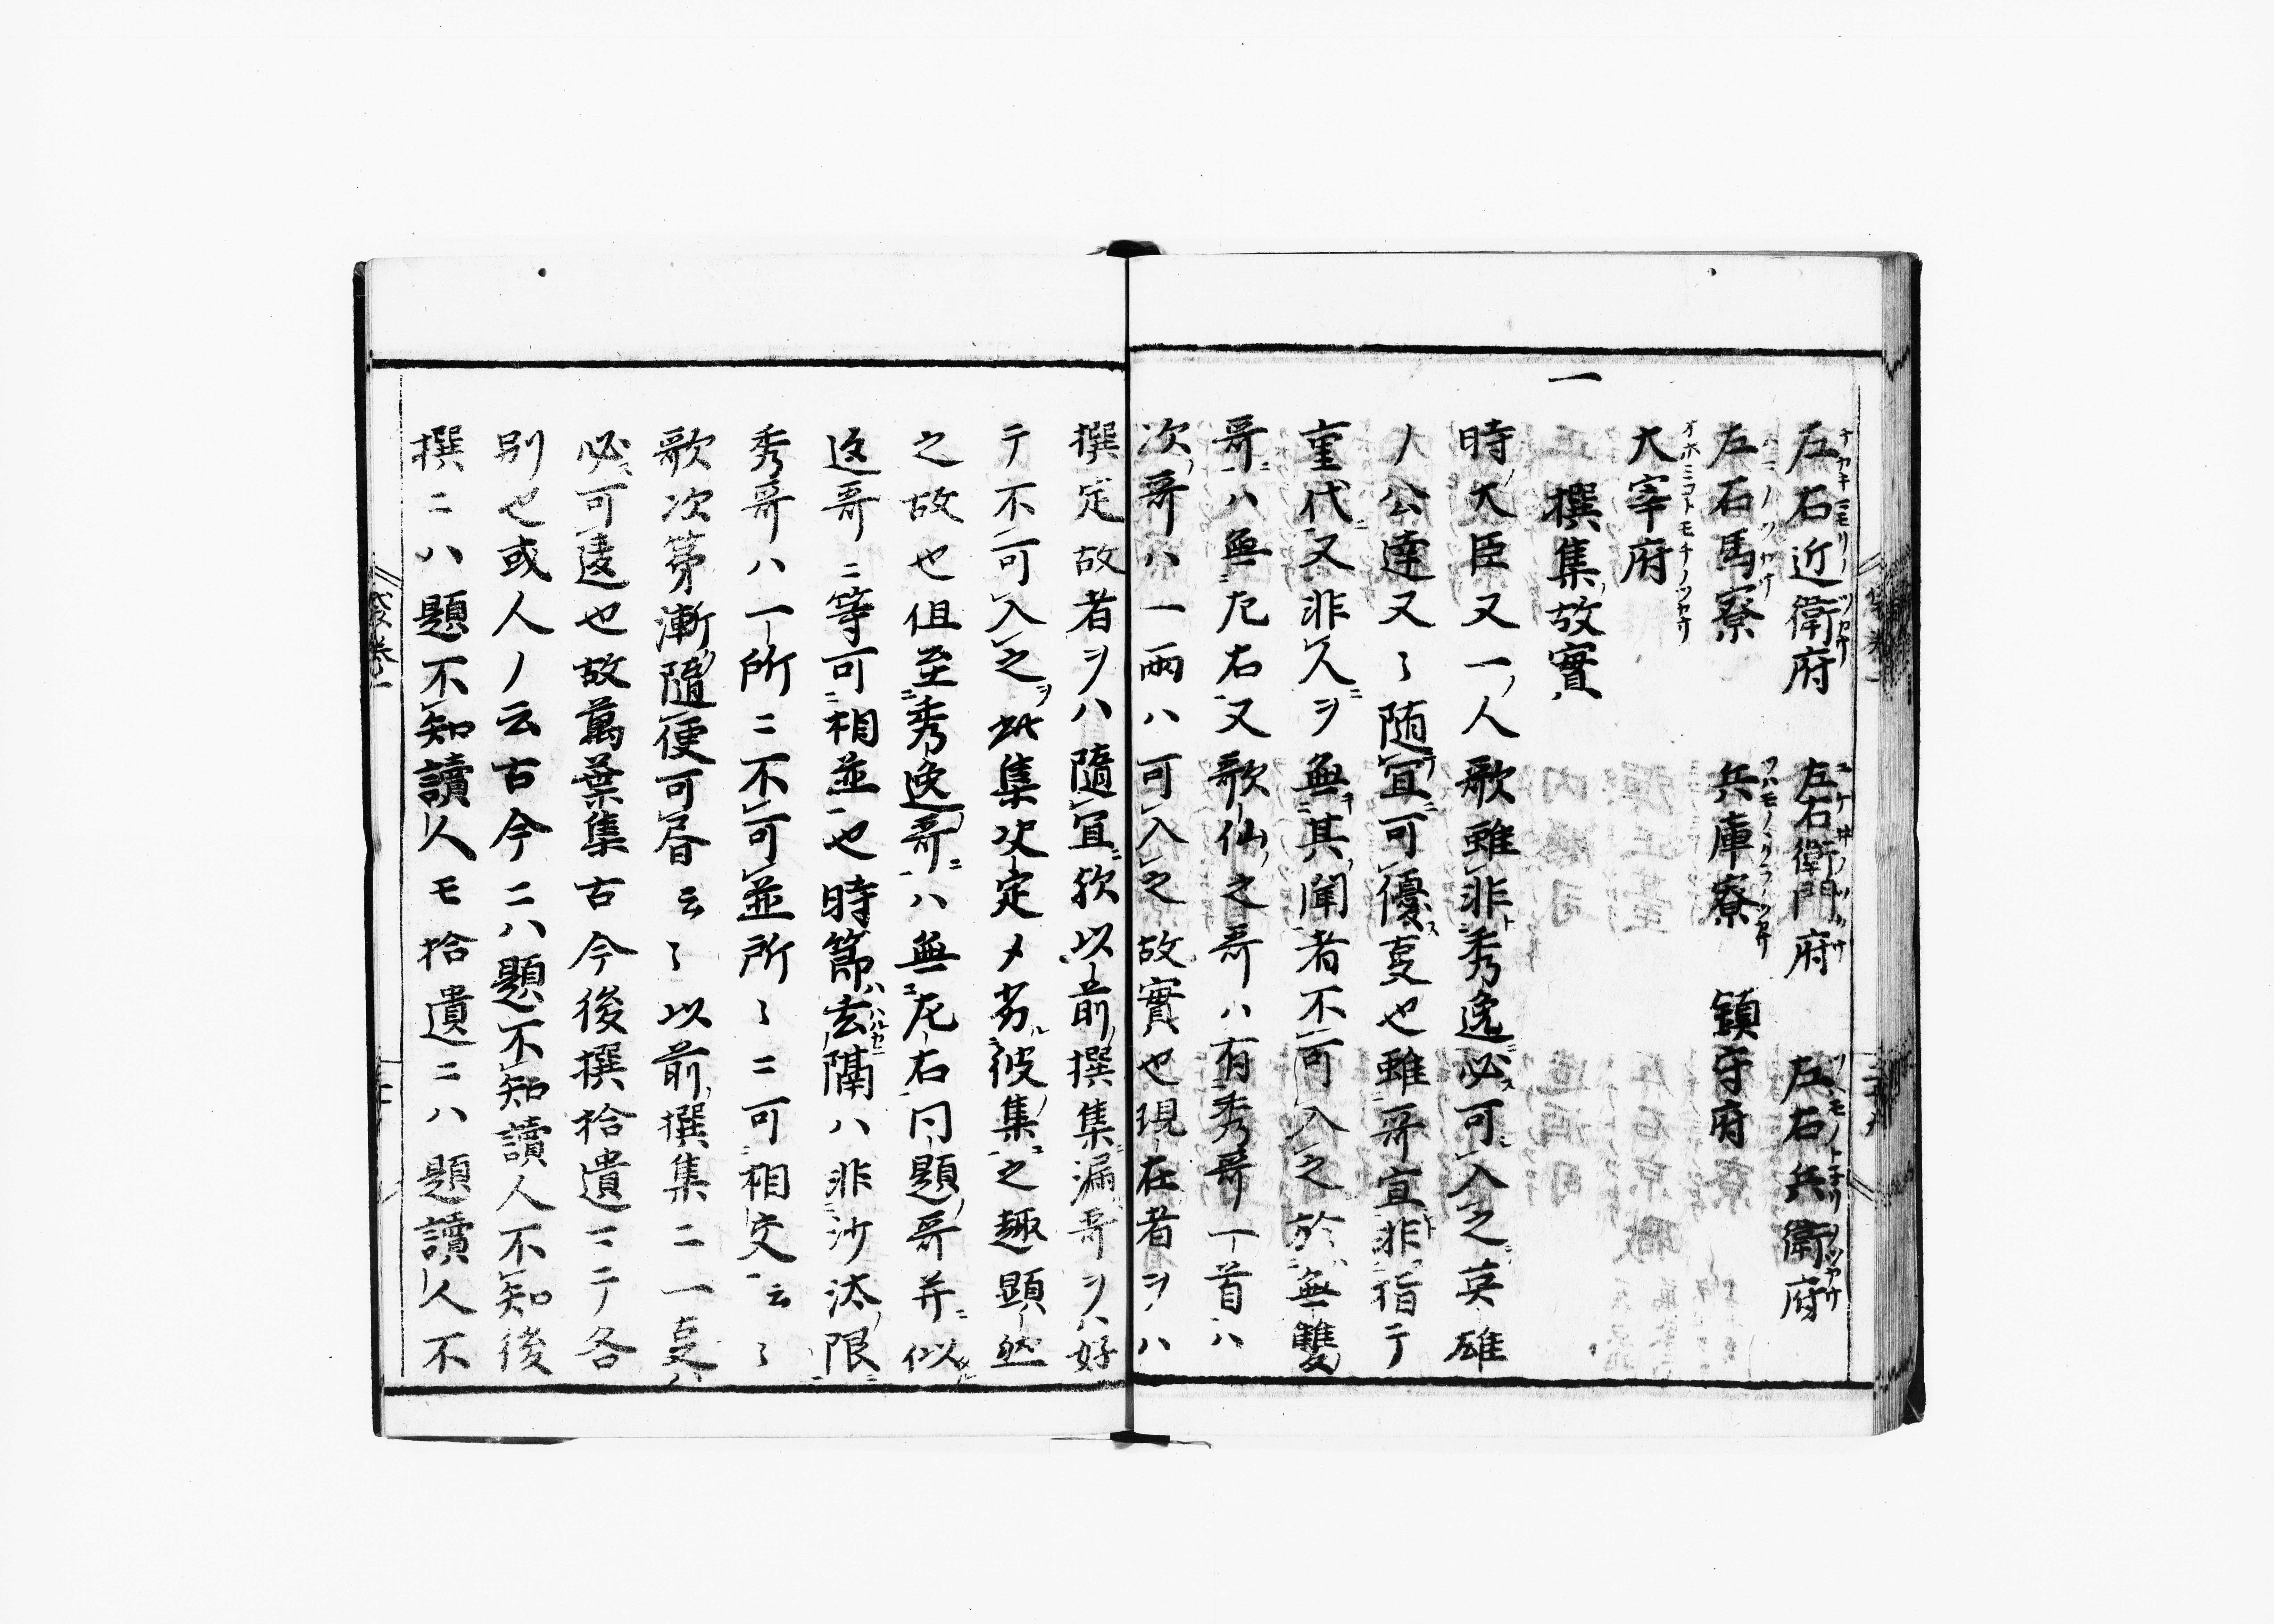 左右近衛府　左右衛門府　左右兵衛府
左右馬寮　兵庫寮　鎮守府
大宰府
一　撰集故實
時大臣又一人歌雖非秀逸必可入之英雄
ノ公達又々随宜可優叓也雖哥宜非指テ
重代又非久ヲ無其聞者不可入之於無雙
哥ハ無左右又歌仙之哥ハ有秀哥一首ハ
次哥ハ一両ハ可入之故實也現在者ヲハ
撰定故者ヲハ隨宜欤以前撰集漏哥ヲハ好
テ不可入之此集次定メ劣彼集之趣顕然
之故也但至秀逸哥ハ無左右同題哥并似
返哥ニ等可相並也時節去隔ハ非沙汰限
秀哥ハ一所ニ不可並所々ニ可相交云々
歌次第漸隨便可㫺云々以前撰集ニ一叓ハ
必可違也故萬葉集古今後撰拾遺ニテ各
別也或人ノ云古今ニハ題不知讀人不知後
撰ニハ題不知讀人モ拾遺ニハ題讀人不